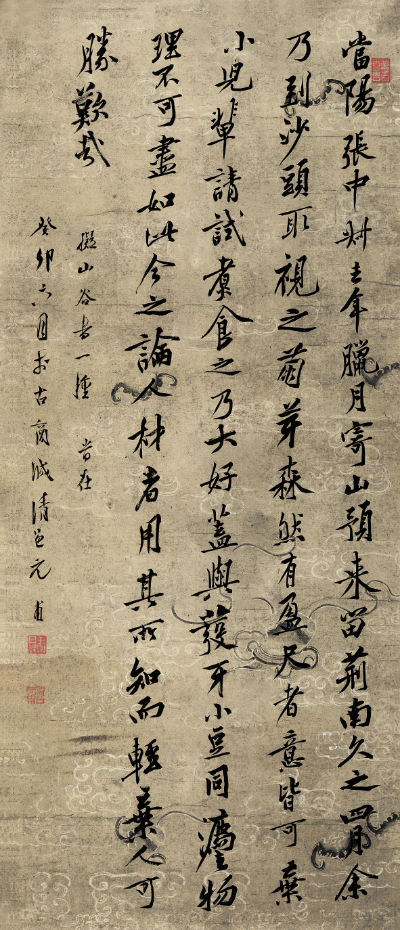 當陽張中叔去年臘月寄山預來留荊南久之四月余
乃到沙頭取視之萌芽森然有盈尺者意皆可棄
小兒輩請試煮食之乃大好蓋與發牙小豆同法物
理不可盡如此今之論人材者用其所知而輕棄人可
勝歎哉
擬山谷書一種 時在
癸卯六月於古商城清